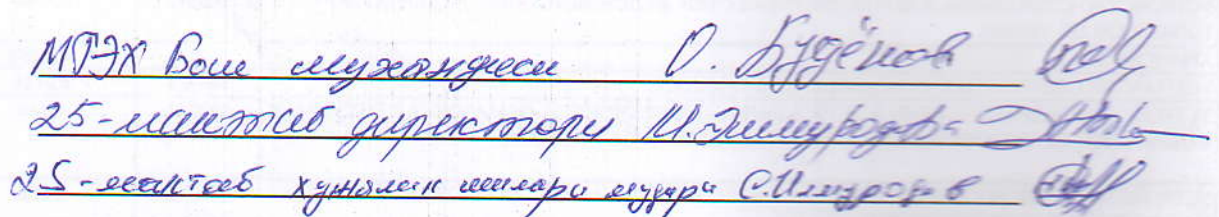 МТЭХ Бош мухандиси О. Будёнов
25-мактаб директори М. Эшмуродова
25-мактаб хужалик ишлари мудири С. Илмуродов